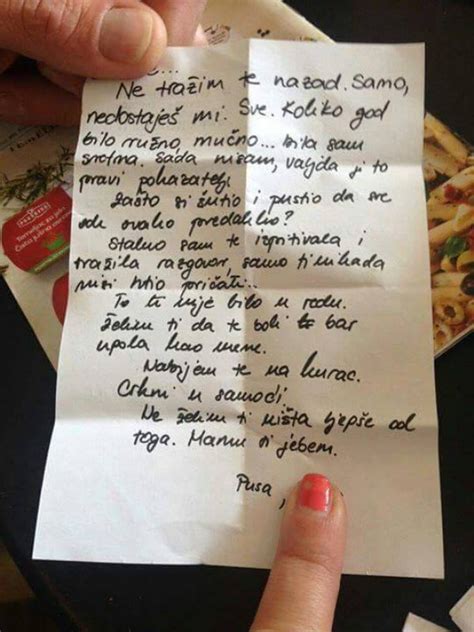 Ne tražim te nazad. Samo,
nedostaješ mi. Sve. Koliko god
bilo ružno, mučno... bila sam
sretna. Sada nisam, valjda je to
pravi pokazatelj.
Zašto si šutio i pustio da se
sve ovako predahlio?
Stalno sam te ispitivala i
tražila razgovor, samo ti nikada
nisi htio pričati...
To ti nije bilo u redu.
Želim ti da te boli bar
upola kao mene.
Nabijem te na kurac.
Crkni u samoći.
Ne želim ti ništa ljepše od
toga. Mamu ti jebem.
Pusa,